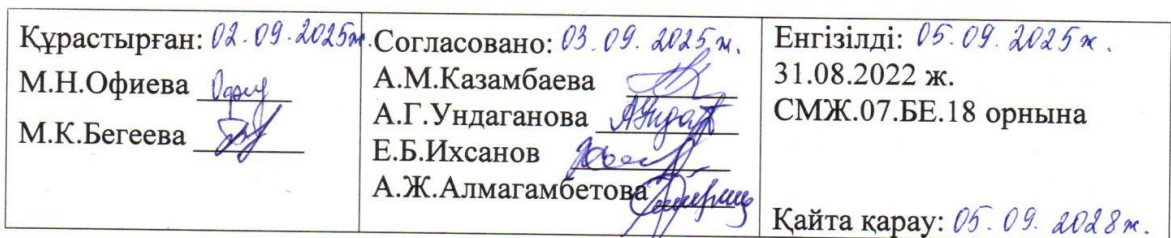 Құрастырған: 02.09.2025ж.
М.Н.Офиева
М.К.Бегеева
Согласовано: 03.09.2025ж.
А.М.Казамбаева
А.Г.Ундаганова
Е.Б.Ихсанов
А.Ж.Алмагамбетова
Енгізілді: 05.09.2025ж.
31.08.2022 ж.
СМЖ.07.БЕ.18 орнына
Қайта қарау: 05.09.2028ж.